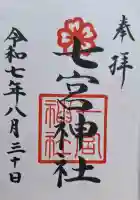 奉拝
七宮神社
令和七年八月三十日